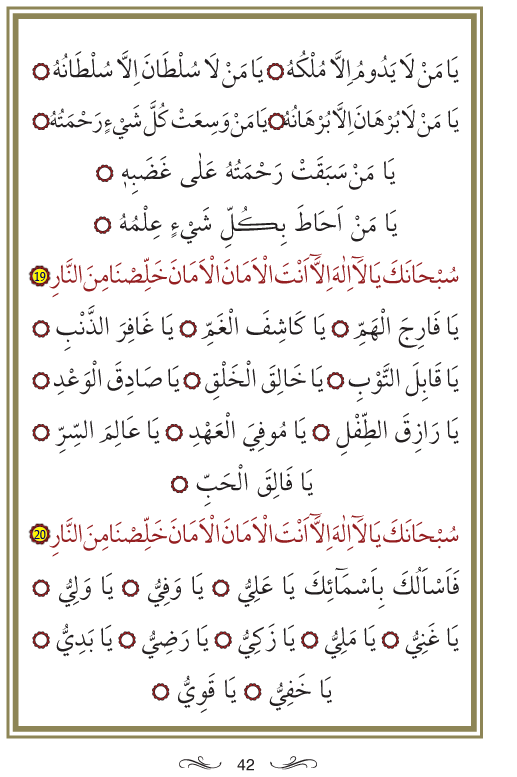 يَا مَنْ لَا يَدُومُ اِلَّا مُلْكُهُ ۞ يَا مَنْ لَا سُلْطَانَ اِلَّا سُلْطَانُهُ ۞
يَا مَنْ لَا بُرْهَانَ اِلَّا بُرْهَانُهُ ۞ يَا مَنْ وَسِعَتْ كُلَّ شَيْءٍ رَحْمَتُهُ ۞
يَا مَنْ سَبَقَتْ رَحْمَتُهُ عَلٰى غَضَبِهِ ۞
يَا مَنْ اَحَاطَ بِكُلِّ شَيْءٍ عِلْمُهُ ۞
سُبْحَانَكَ يَا لَٓا اِلٰهَ اِلَّٓا اَنْتَ الْاَمَانَ الْاَمَانَ خَلِّصْنَا مِنَ النَّارِ 19
يَا فَارِجَ الْهَمِّ ۞ يَا كَاشِفَ الْغَمِّ ۞ يَا غَافِرَ الذَّنْبِ ۞
يَا قَابِلَ التَّوْبِ ۞ يَا خَالِقَ الْخَلْقِ ۞ يَا صَادِقَ الْوَعْدِ ۞
يَا رَازِقَ الطِّفْلِ ۞ يَا مُوفِيَ الْعَهْدِ ۞ يَا عَالِمَ السِّرِّ ۞
يَا فَالِقَ الْحَبِّ ۞
سُبْحَانَكَ يَا لَٓا اِلٰهَ اِلَّٓا اَنْتَ الْاَمَانَ الْاَمَانَ خَلِّصْنَا مِنَ النَّارِ 20
فَاَسْاَلُكَ بِاَسْمَٓائِكَ يَا عَلِيُّ ۞ يَا وَفِيُّ ۞ يَا وَلِيُّ ۞
يَا غَنِيُّ ۞ يَا مَلِيُّ ۞ يَا زَكِيُّ ۞ يَا رَضِيُّ ۞ يَا بَدِيُّ ۞
يَا خَفِيُّ ۞ يَا قَوِيُّ ۞
42